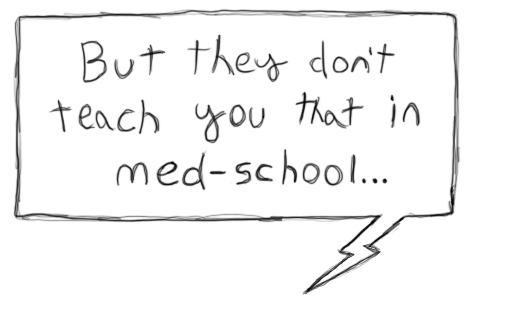 But they don't
teach you that in
med-school...